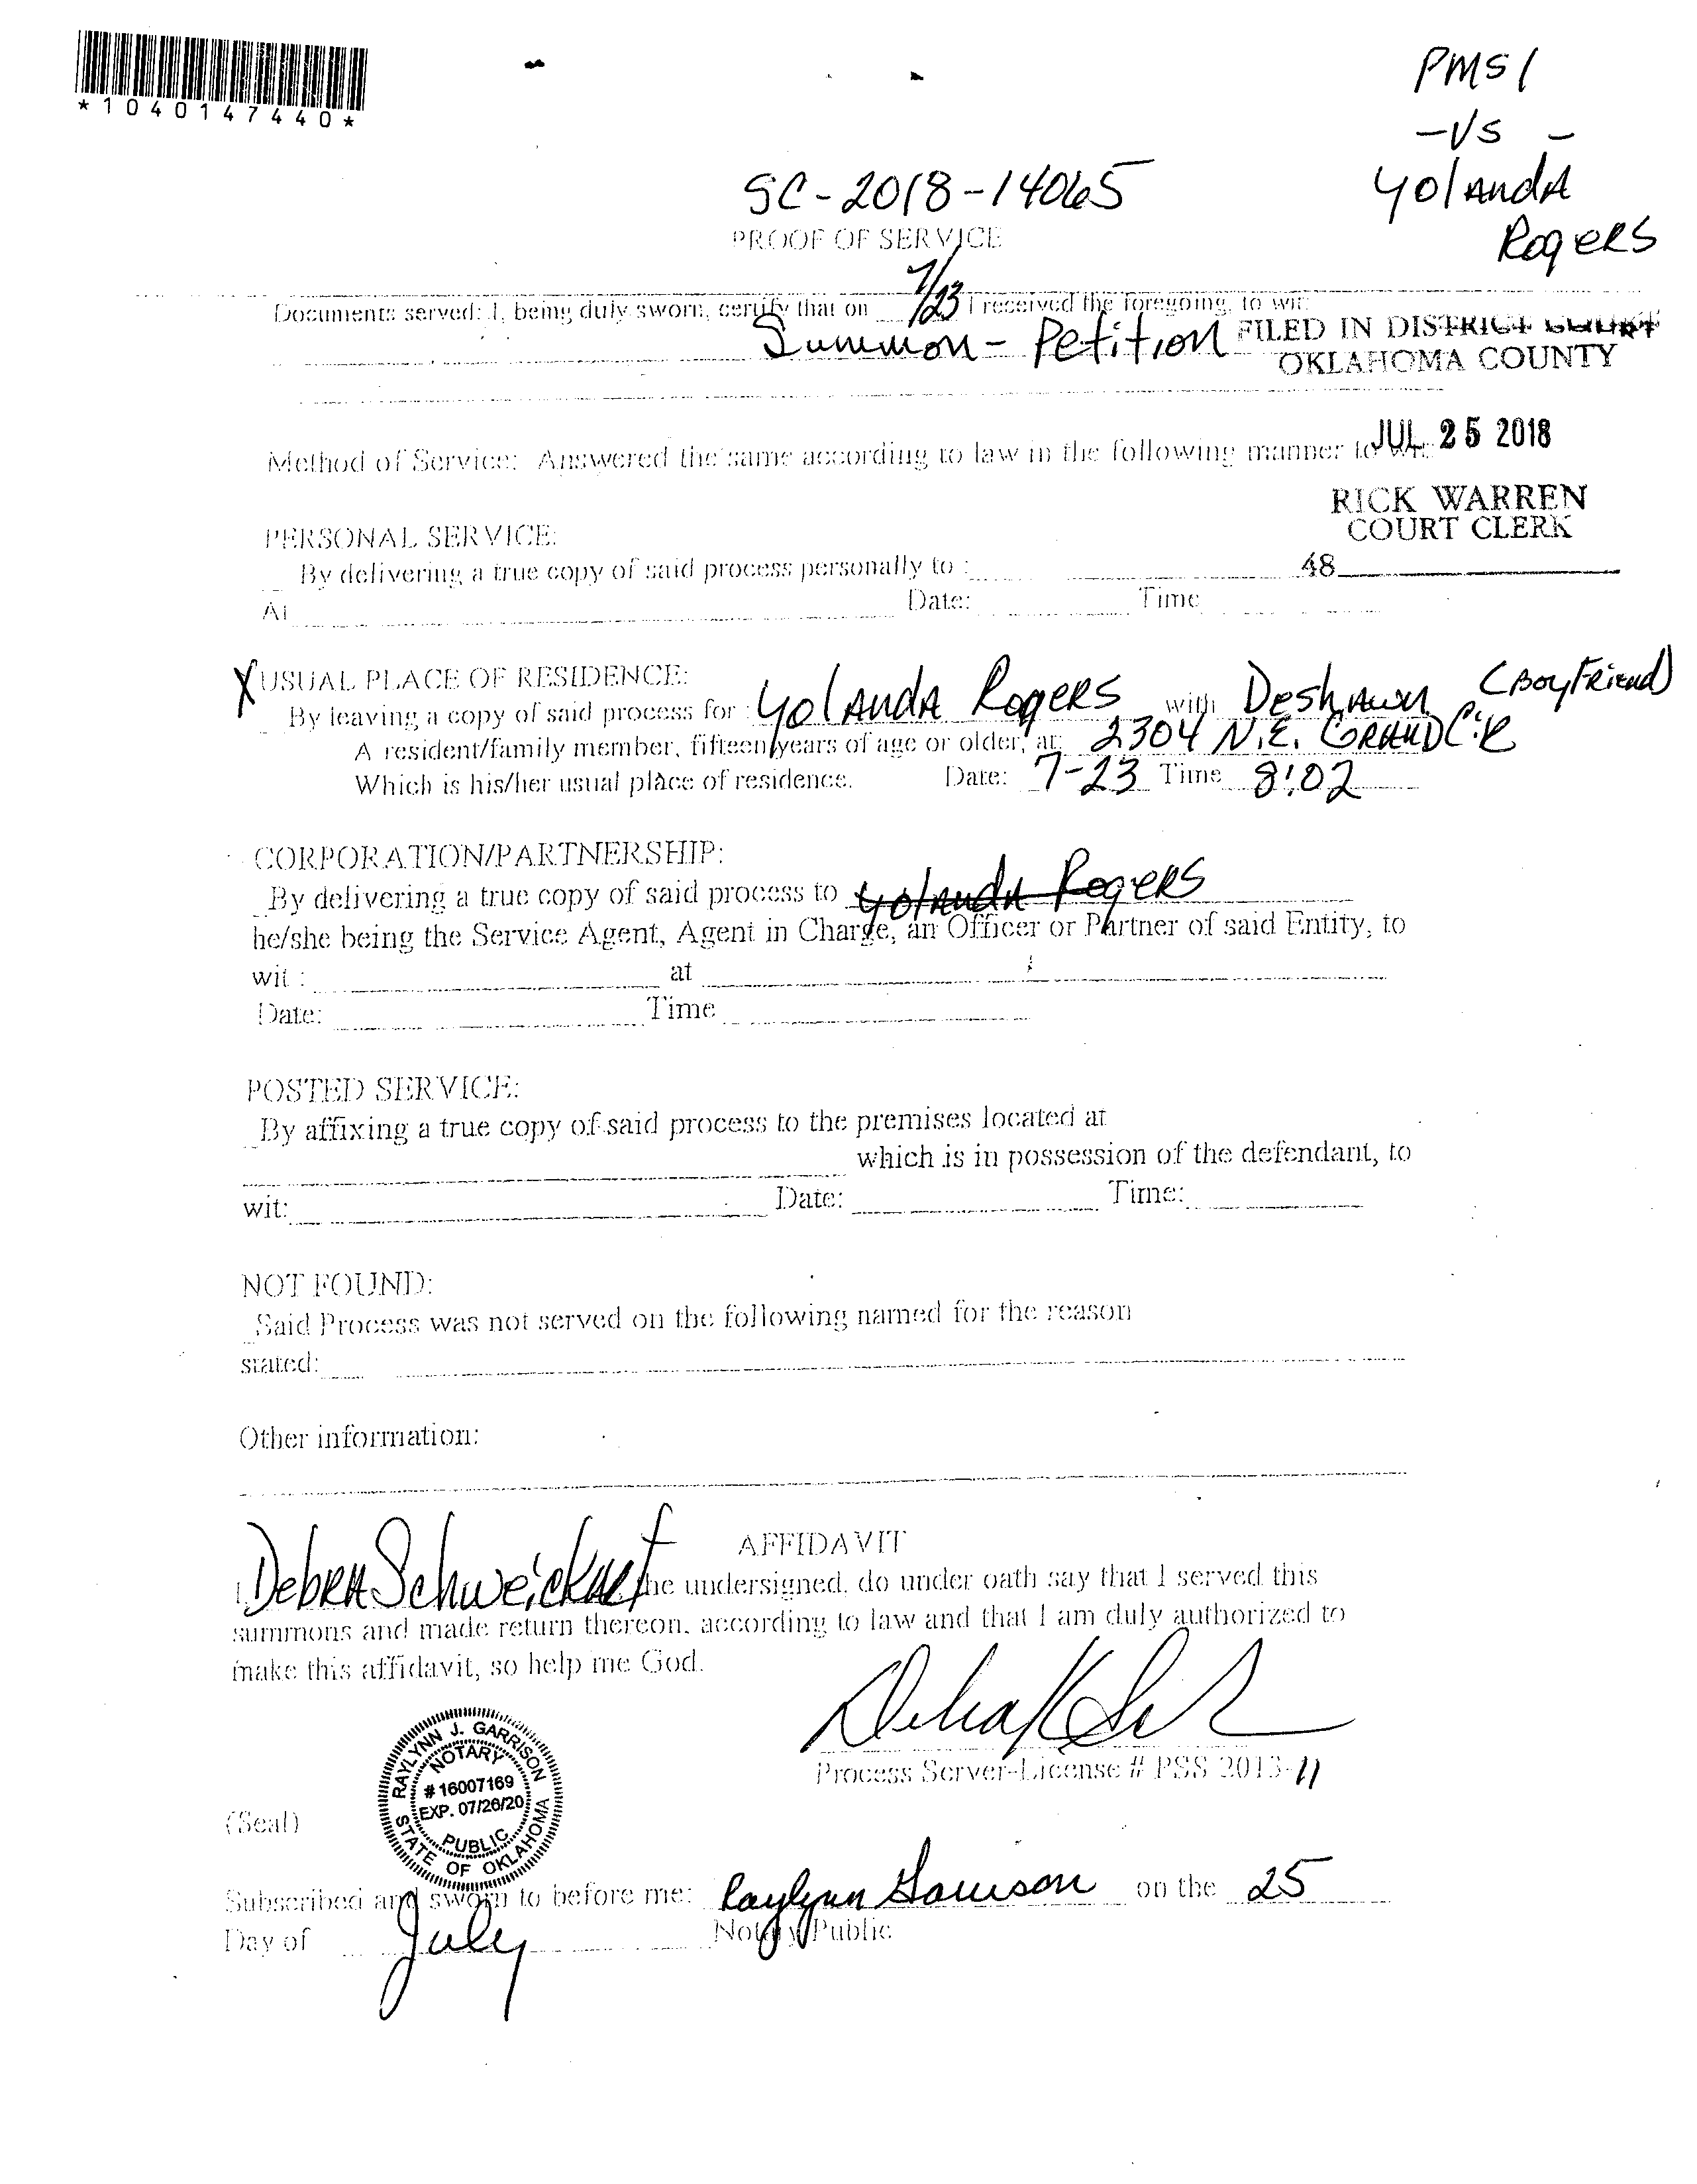 *1040147440*
PMSI
-VS-
Yolanda
Rogers
SC-2018-14065
PROOF OF SERVICE
Documents served: I, being duly sworn, certify that on 7/23 I received the foregoing, to wit:
Summon - Petition
FILED IN DISTRICT COURT
OKLAHOMA COUNTY
JUL 25 2018
Method of Service: Answered the same according to law in the following manner to wit:
RICK WARREN
COURT CLERK
48
PERSONAL SERVICE:
By delivering a true copy of said process personally to :
At Date: Time
X USUAL PLACE OF RESIDENCE:
By leaving a copy of said process for : Yolanda Rogers with Deshawn (Boyfriend)
A resident/family member, fifteen years of age or older, at: 2304 N.E. GRAND Cir
Which is his/her usual place of residence. Date: 7-23 Time 8:02
CORPORATION/PARTNERSHIP:
By delivering a true copy of said process to Yolanda Rogers
he/she being the Service Agent, Agent in Charge, an Officer or Partner of said Entity, to
wit : at
Date: Time
POSTED SERVICE:
By affixing a true copy of said process to the premises located at
which is in possession of the defendant, to
wit: Date: Time:
NOT FOUND:
Said Process was not served on the following named for the reason
stated:
Other information:
AFFIDAVIT
I Debra Schweickart the undersigned, do under oath say that I served this
summons and made return thereon, according to law and that I am duly authorized to
make this affidavit, so help me God.
Process Server-License # PSS 2013-11
RAYLYNN J. GARRISON
NOTARY
# 16007169
EXP. 07/26/20
PUBLIC
STATE OF OKLAHOMA
(Seal)
Subscribed and sworn to before me: Raylynn Garrison on the 25
Day of July Notary Public